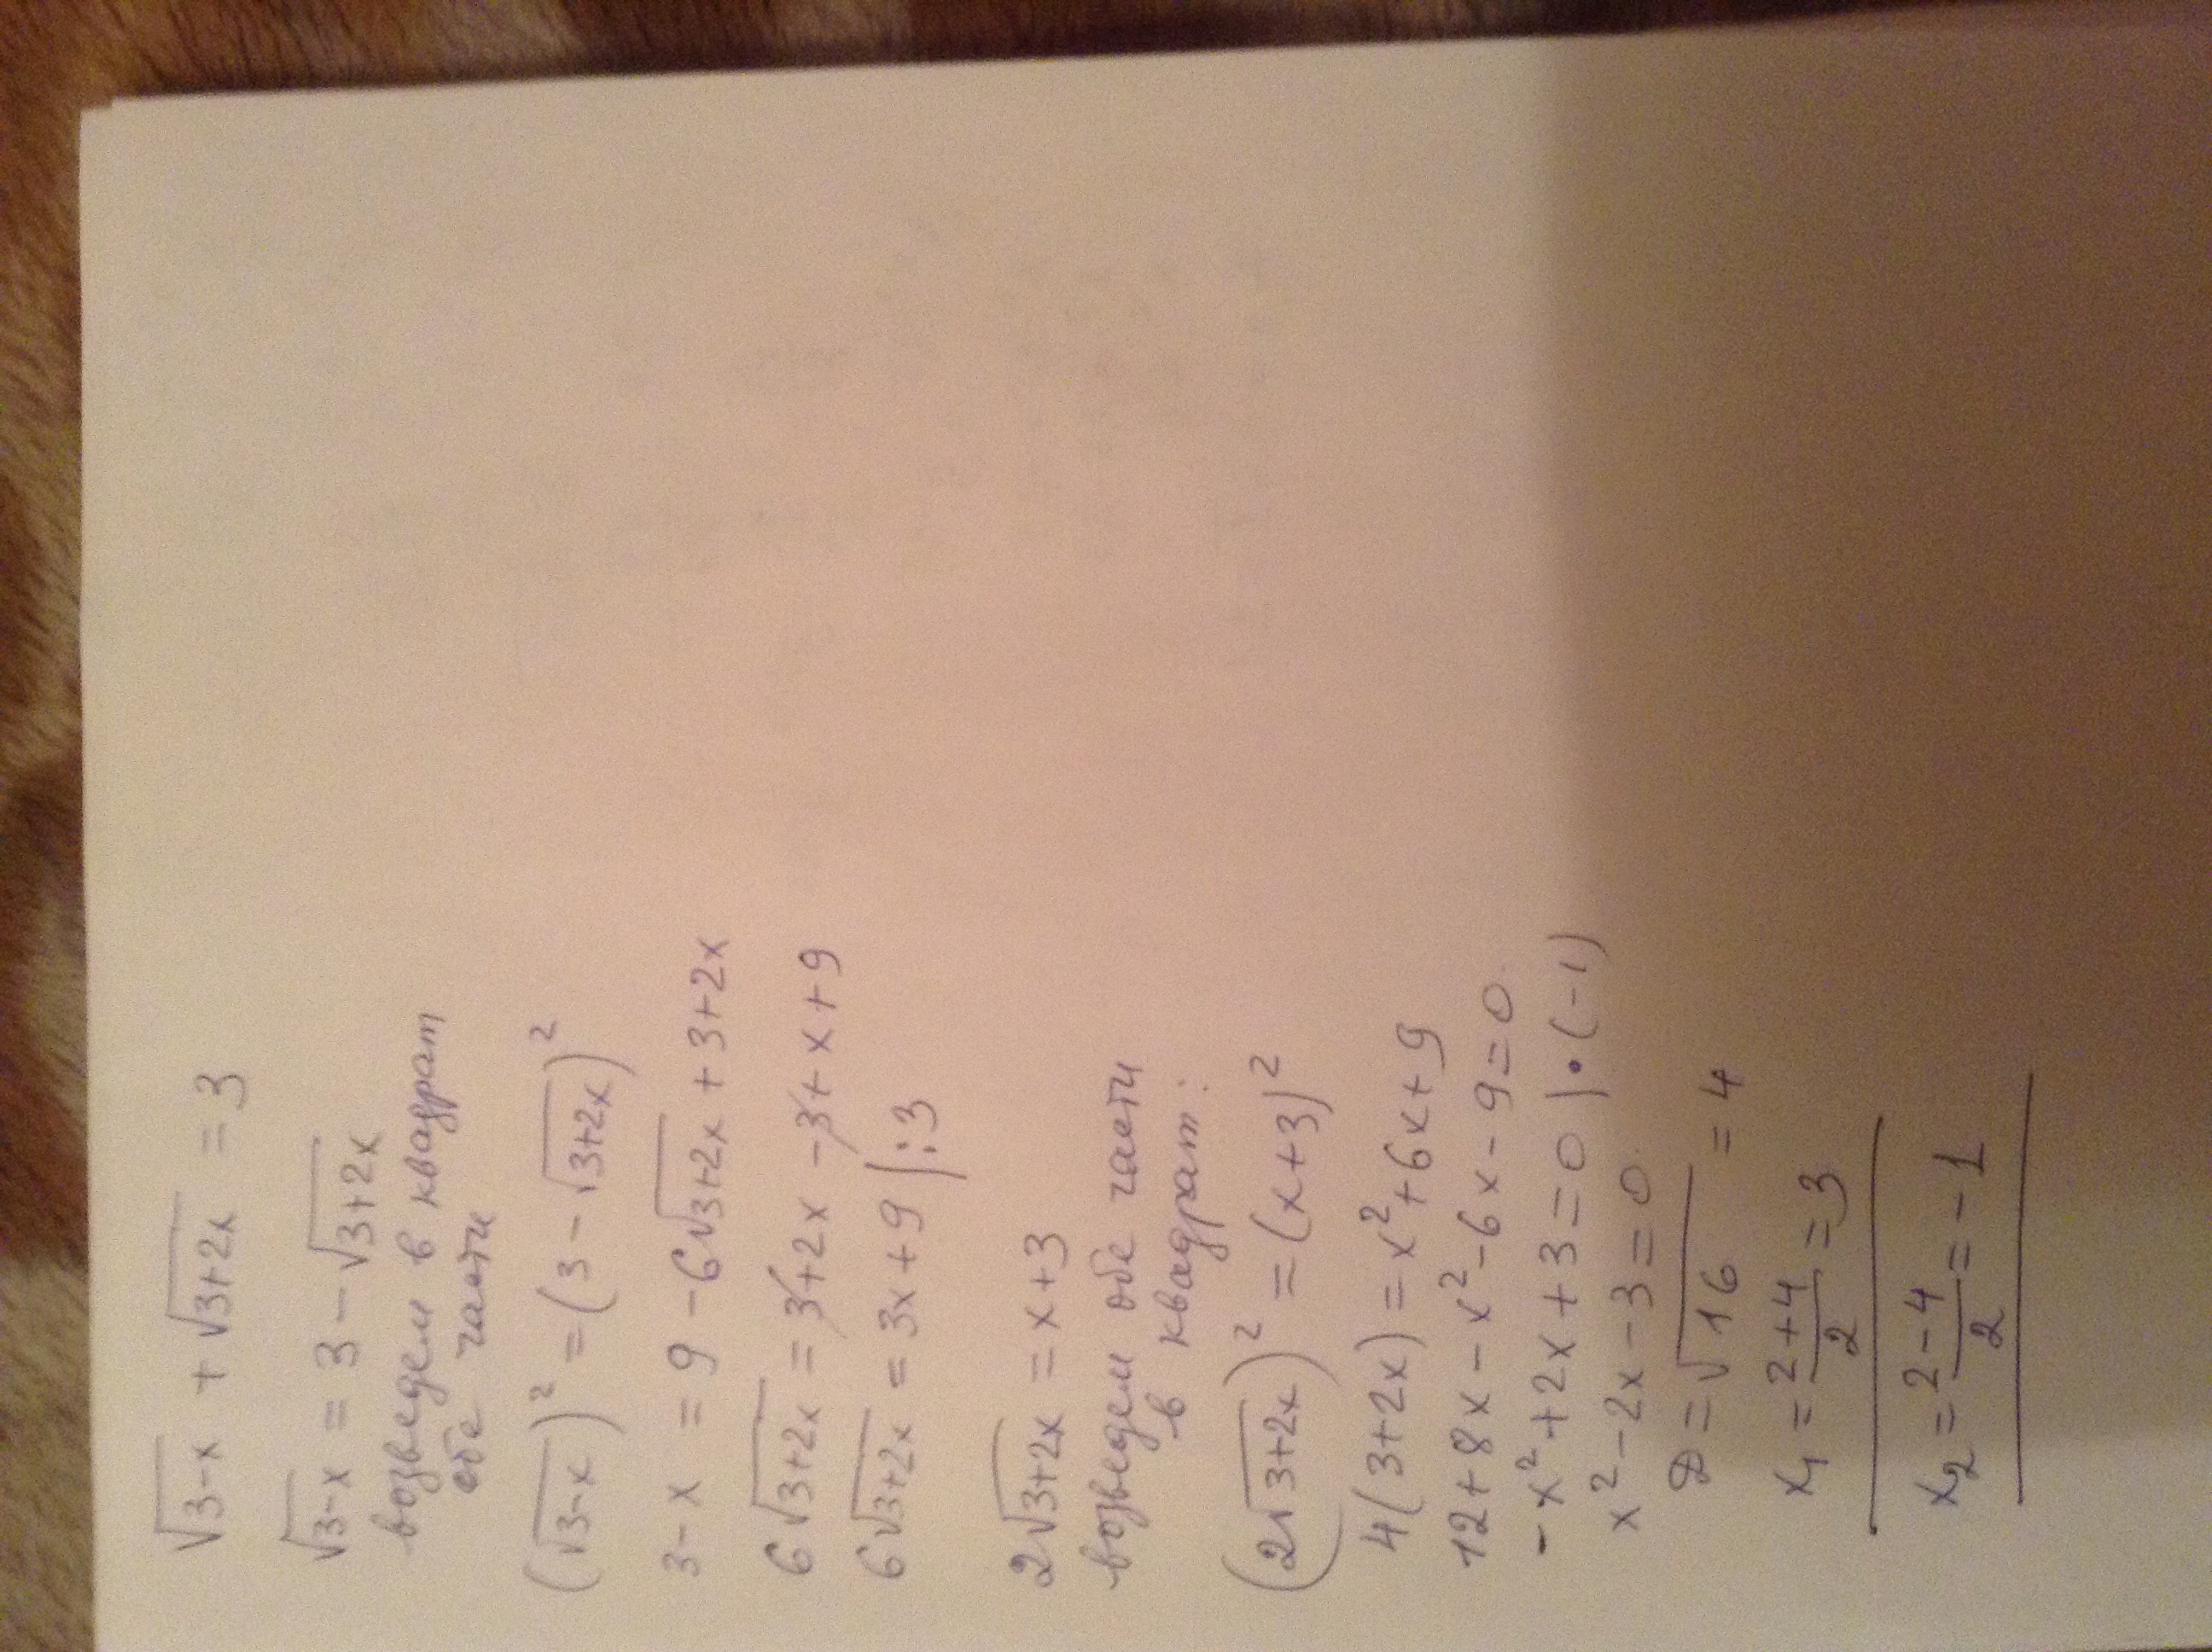 √3-x + √3+2x = 3
√3-x = 3 - √3+2x
возведем в квадрат
обе части
(√3-x)² = (3 - √3+2x)²
3-x = 9 - 6√3+2x + 3+2x
6√3+2x = 3+2x -3+x+9
6√3+2x = 3x+9 |:3
2√3+2x = x+3
возведем обе части
в квадрат:
(2√3+2x)² = (x+3)²
4(3+2x) = x²+6x+9
12+8x-x²-6x-9=0
-x²+2x+3=0 |•(-1)
x²-2x-3=0
D=√16 = 4
x₁ = 2+4/2 = 3
x₂ = 2-4/2 = -1